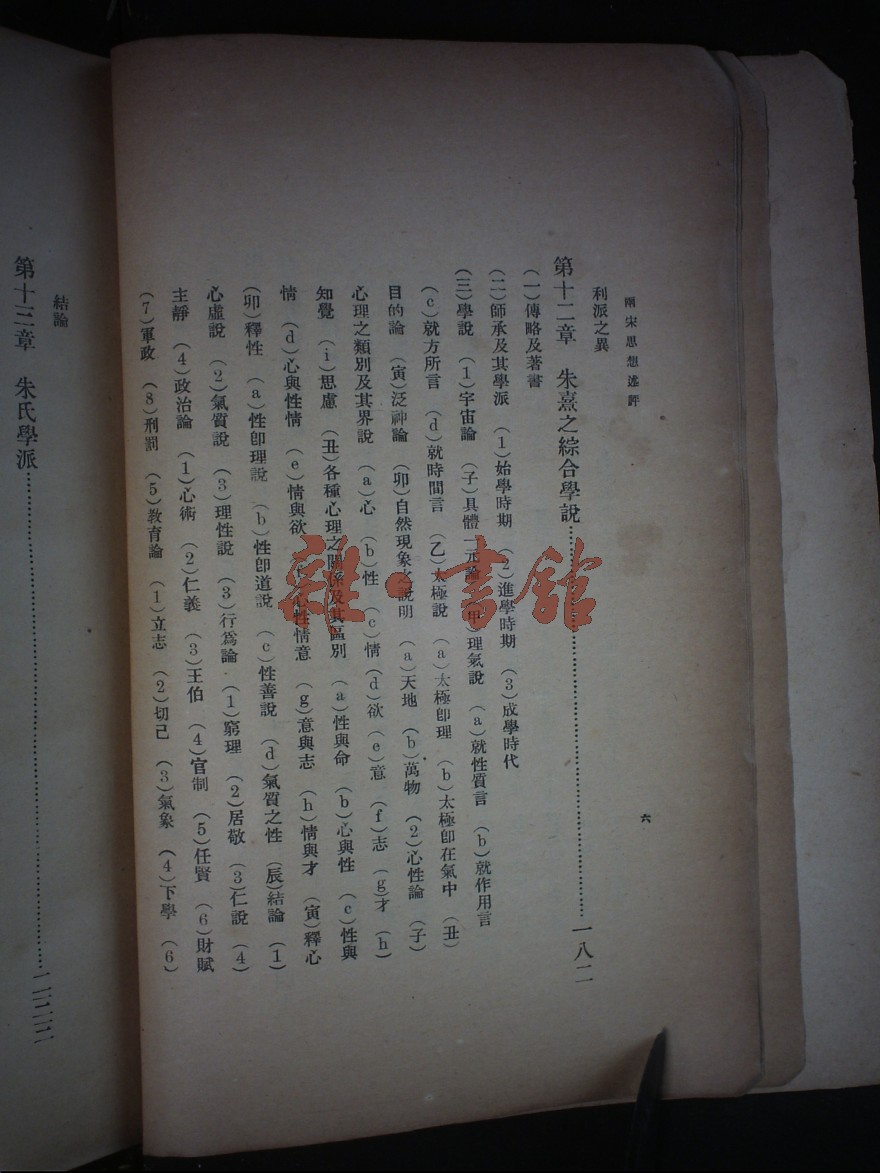 兩宋思想述評
六
利派之異
第十二章 朱熹之綜合學說……一八二
(一)傳略及著書
(二)師承及其學派 (1)始學時期 (2)進學時期 (3)成學時代
(三)學說 (1)宇宙論 (子)具體一元論 (甲)理氣說 (a)就性質言 (b)就作用言
(c)就方所言 (d)就時間言 (乙)太極說 (a)太極卽理 (b)太極卽在氣中 (丑)
目的論 (寅)泛神論 (卯)自然現象之說明 (a)天地 (b)萬物 (2)心性論 (子)
心理之類別及其界說 (a)心 (b)性 (c)情 (d)欲 (e)意 (f)志 (g)才 (h)
知覺 (i)思慮 (丑)各種心理之關係及其區別 (a)性與命 (b)心與性 (c)性與
情 (d)心與性情 (e)情與欲 (f)心性情意 (g)意與志 (h)情與才 (寅)釋心
(卯)釋性 (a)性卽理說 (b)性卽道說 (c)性善說 (d)氣質之性 (辰)結論 (1)
心虛說 (2)氣質說 (3)理性說 (3)行爲論 (1)窮理 (2)居敬 (3)仁說 (4)
主靜 (4)政治論 (1)心術 (2)仁義 (3)王伯 (4)官制 (5)任賢 (6)財賦
(7)軍政 (8)刑罰 (5)教育論 (1)立志 (2)切己 (3)氣象 (4)下學 (6)
結論
第十三章 朱氏學派……
雜·書館